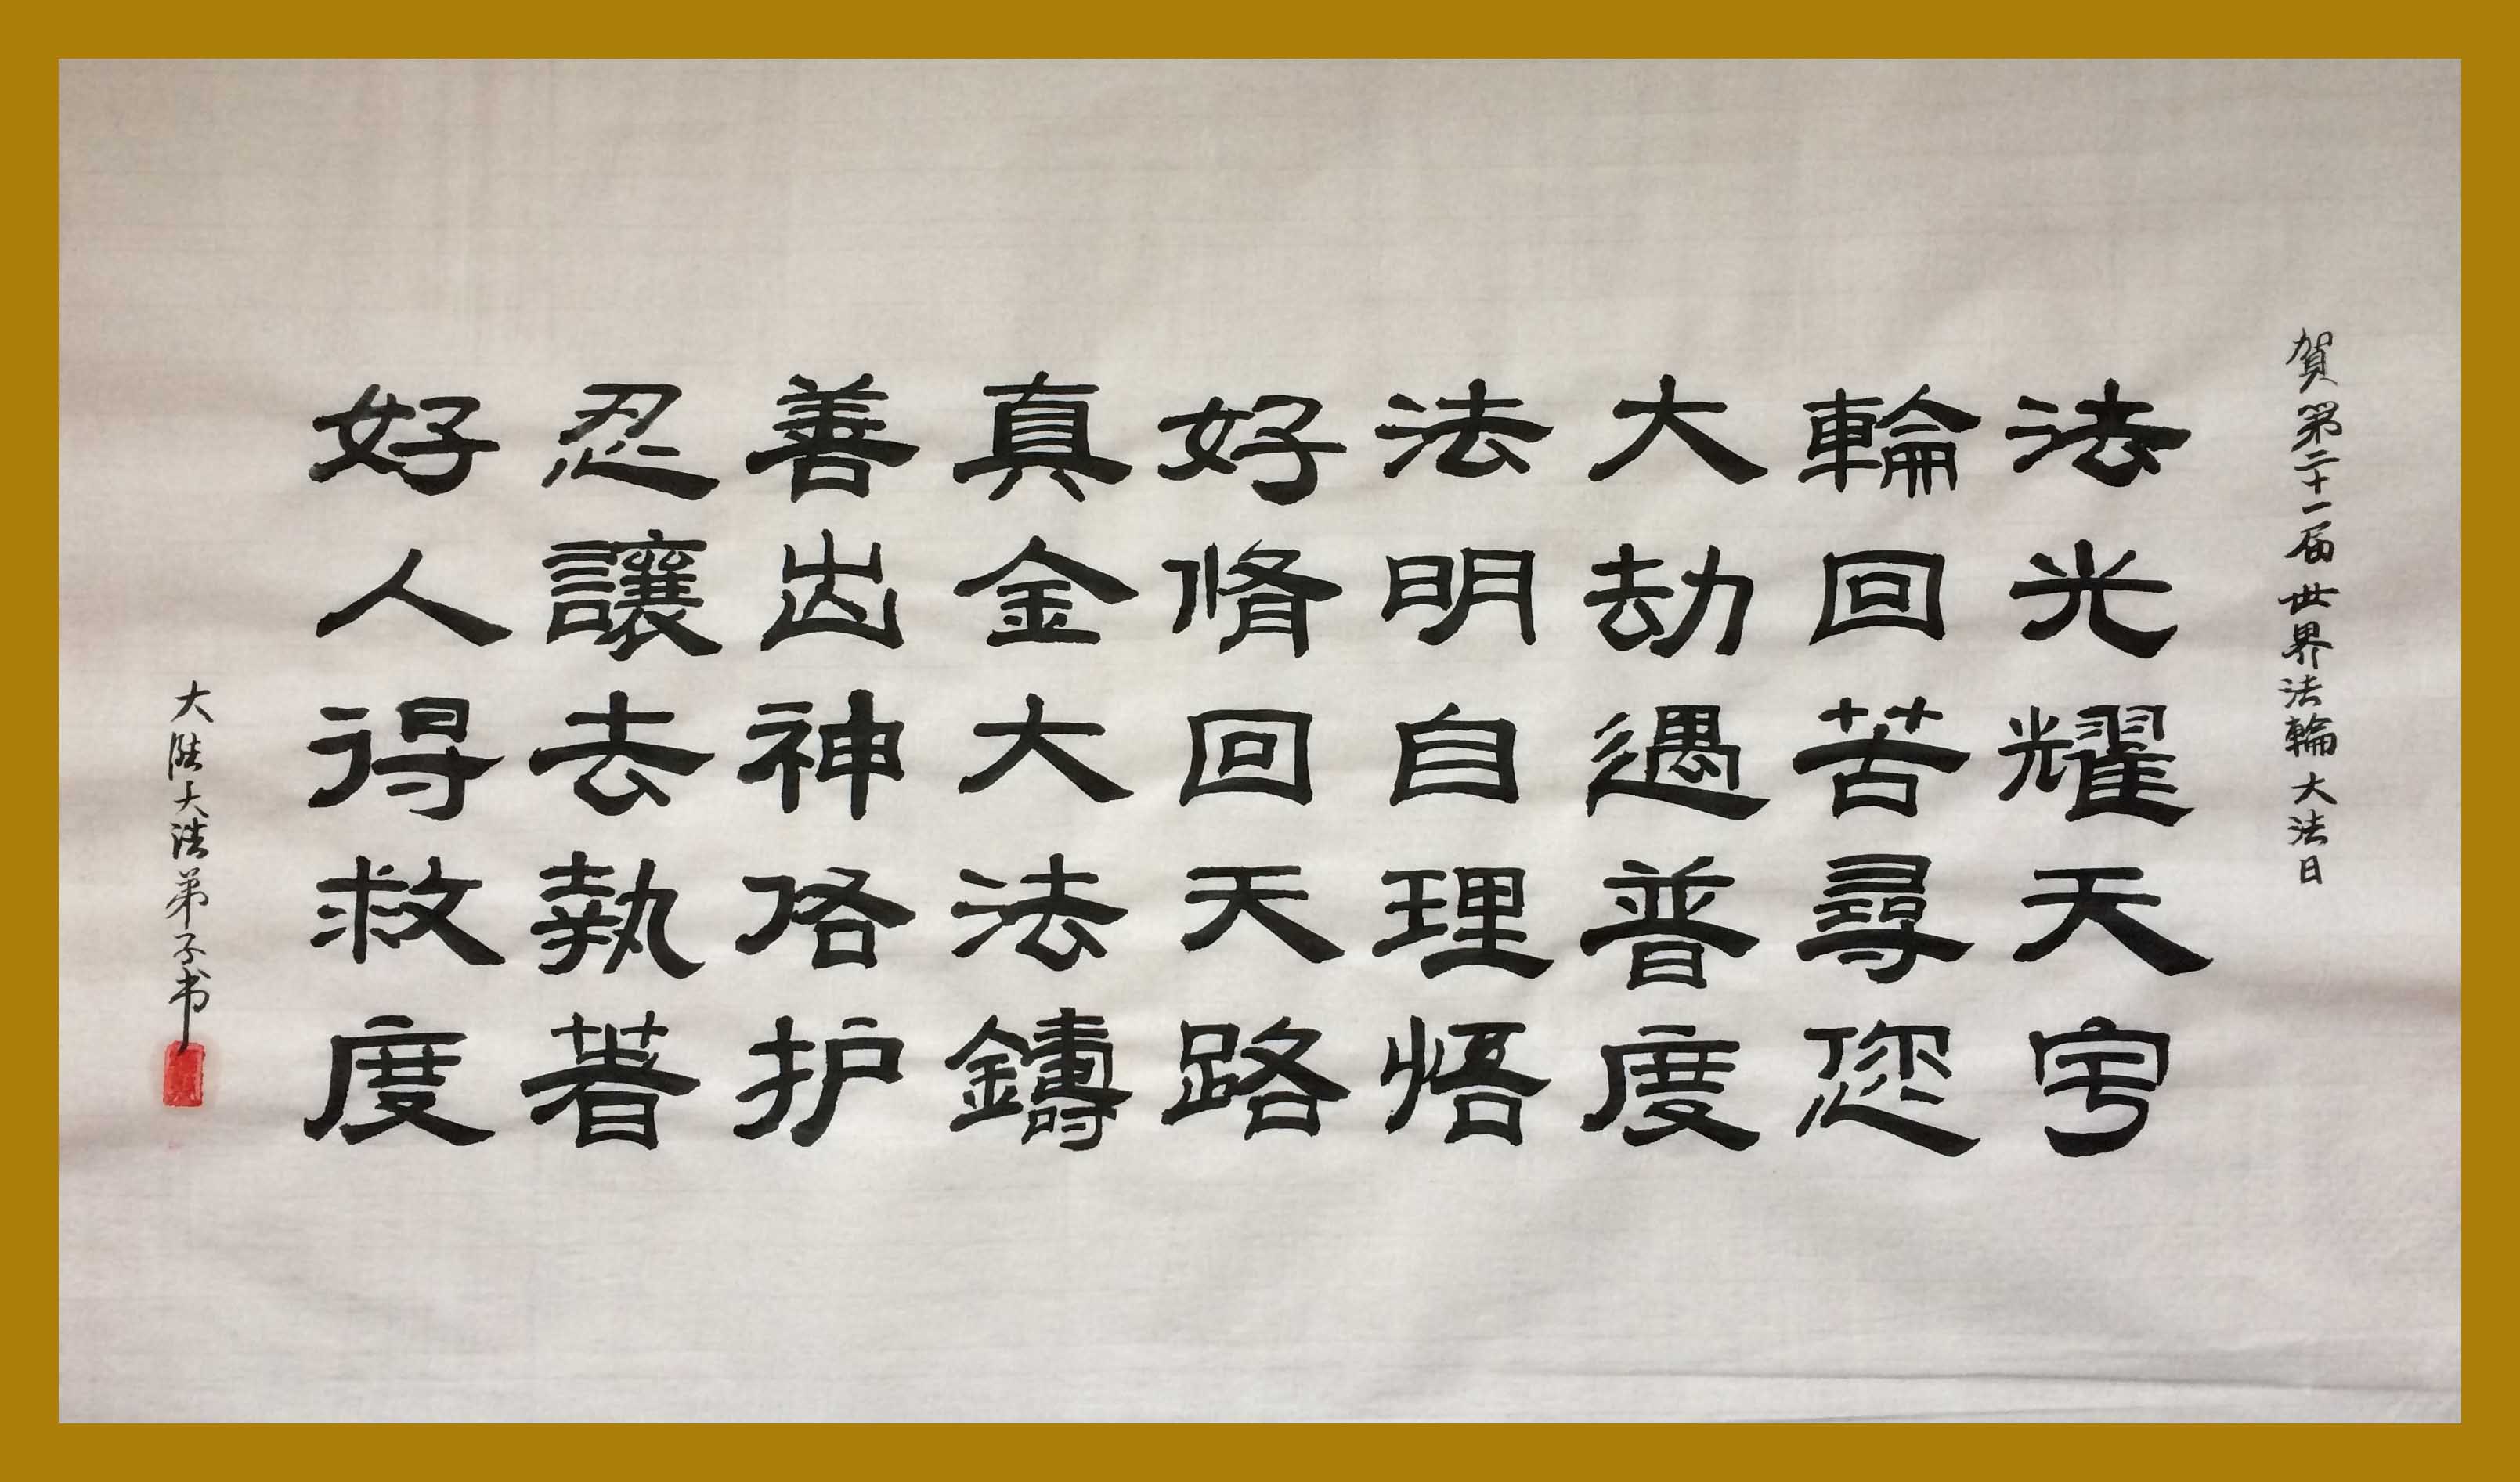 賀第二十一届世界法輪大法日
法光耀天宇
輪回苦尋您
大劫遇普度
法明自理悟
好脩回天路
真金大法鑄
善出神佫护
忍讓去執著
好人得救度
大陸大法弟子书